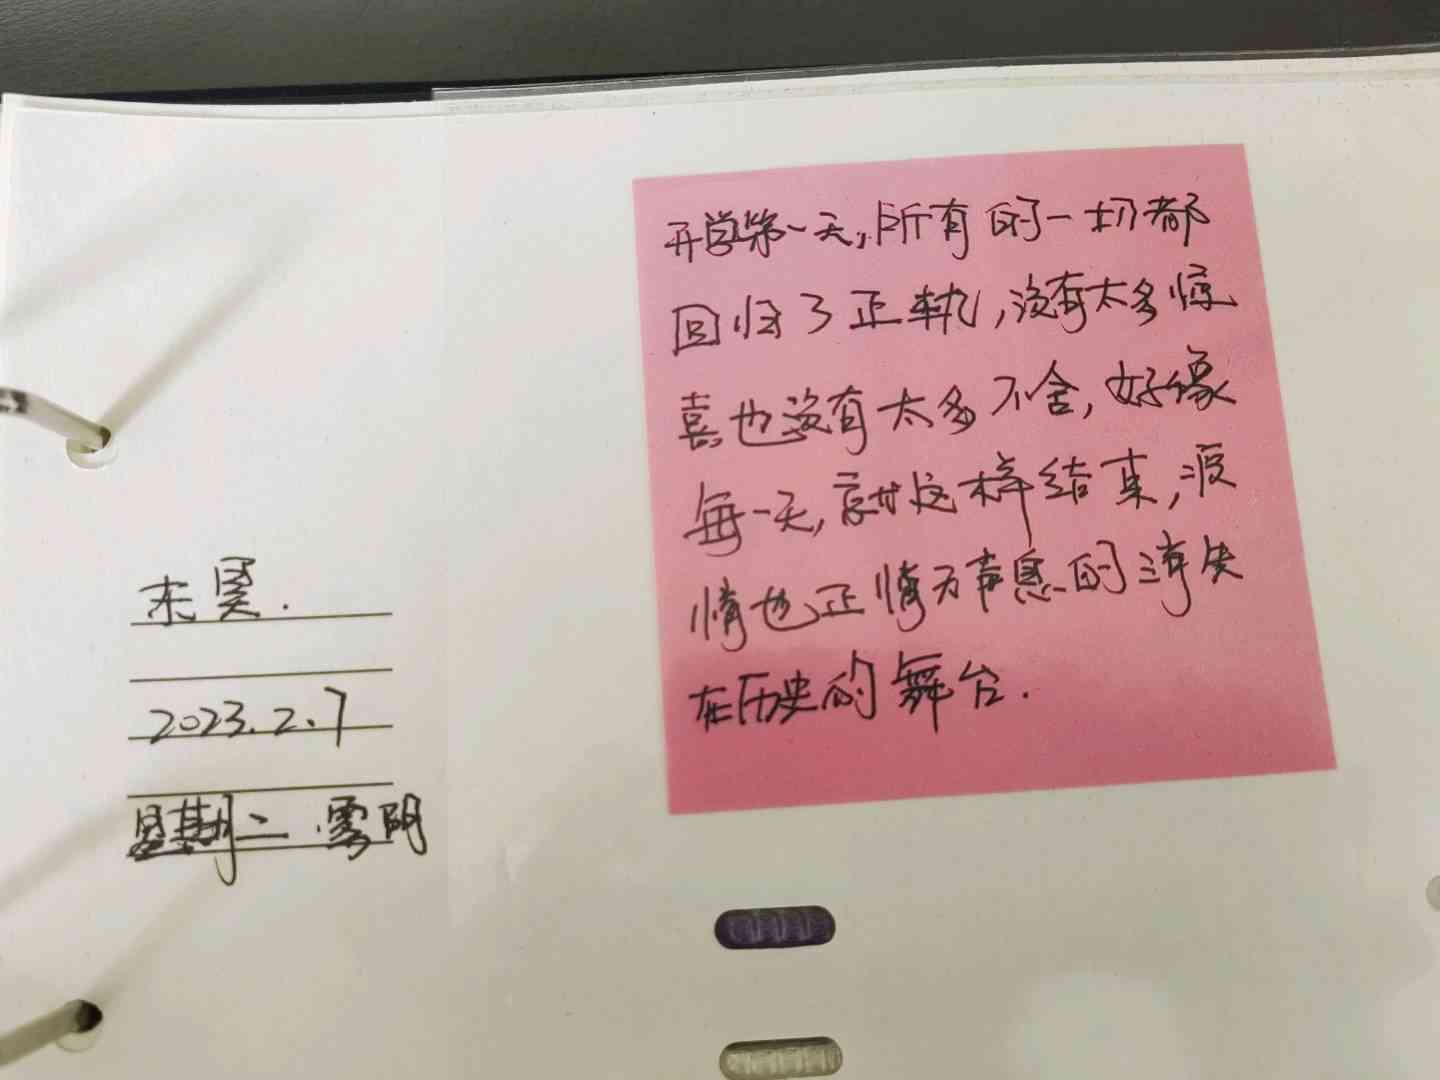 开学第一天,所有的一切都
回归了正轨,没有太多惊
喜也没有太多不舍,好像
每一天,就这样结束,疫
情也正悄无声息的消失
在历史的舞台.
2023.2.7
星期二 雾阴